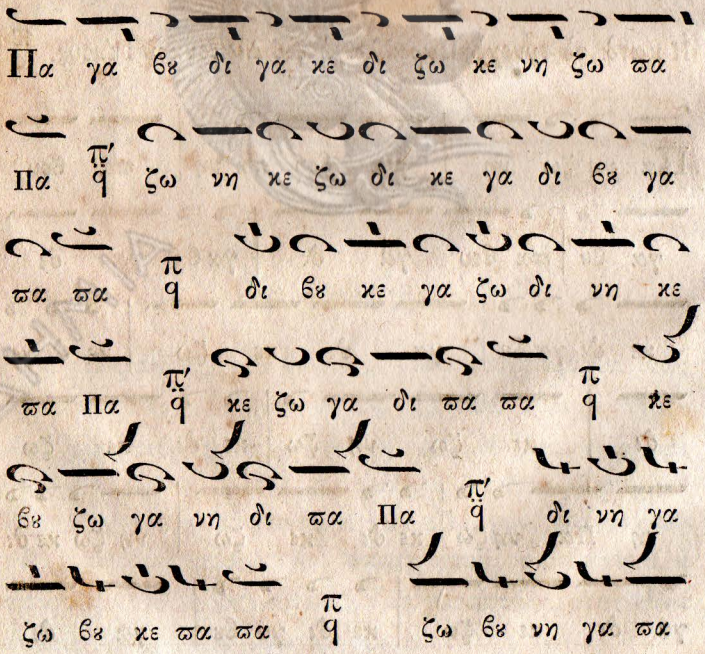 Πα γα βȣ δι γα κε δι ζω κε νη ζω πα
Πα π̈ʹ q ζω νη κε ζω δι κε γα δι βȣ γα
πα πα π q δι βȣ κε γα ζω δι νη κε
πα Πα π̈ʹ q κε ζω γα δι πα πα π q κε
βȣ ζω γα νη δι πα Πα π̈ʹ q δι νη γα
ζω βȣ κε πα πα π q ζω βȣ νη γα πα